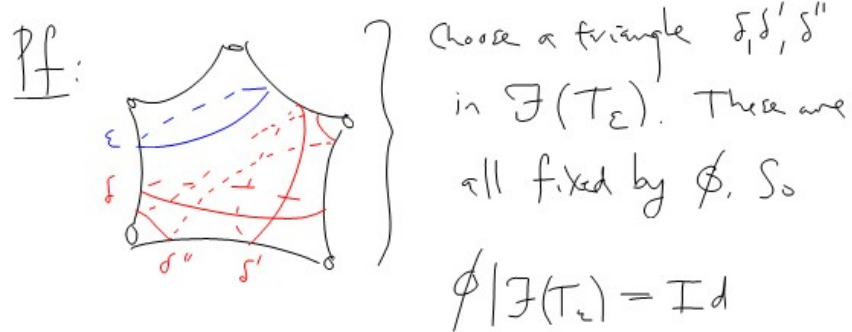 Pf:
ε
δ
δ''
δ'
Choose a triangle δ, δ', δ''
in ℱ(T_ε). These are
all fixed by ϕ. So
ϕ|ℱ(T_ε) = Id